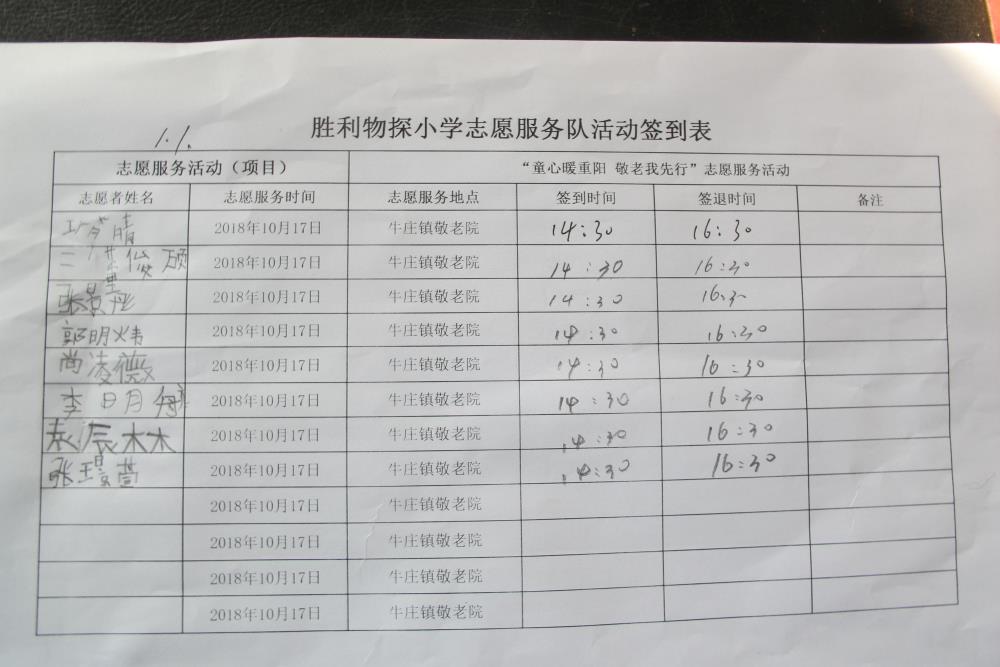 胜利物探小学志愿服务队活动签到表
志愿服务活动（项目） “童心暖重阳 敬老我先行”志愿服务活动
志愿者姓名 志愿服务时间 志愿服务地点 签到时间 签退时间 备注
2018年10月17日 牛庄镇敬老院 14:30 16:30
2018年10月17日 牛庄镇敬老院 14:30 16:30
张景彤 2018年10月17日 牛庄镇敬老院 14:30 16:30
郭明炜 2018年10月17日 牛庄镇敬老院 14:30 16:30
尚凌薇 2018年10月17日 牛庄镇敬老院 14:30 16:30
李明 2018年10月17日 牛庄镇敬老院 14:30 16:30
袁辰林 2018年10月17日 牛庄镇敬老院 14:30 16:30
张璟萱 2018年10月17日 牛庄镇敬老院 14:30 16:30
2018年10月17日 牛庄镇敬老院
2018年10月17日 牛庄镇敬老院
2018年10月17日 牛庄镇敬老院
2018年10月17日 牛庄镇敬老院